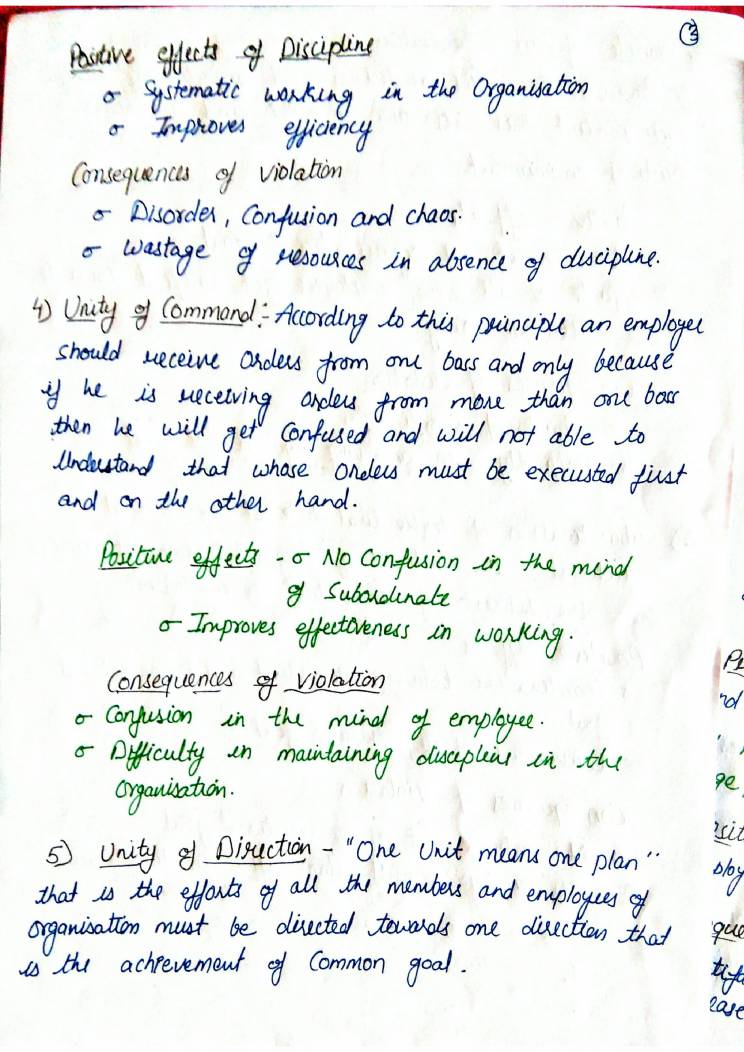 3
Positive effects of Discipline
Systematic working in the Organisation
Improves efficiency
Consequences of violation
Disorder, Confusion and chaos.
Wastage of resources in absence of discipline.
4) Unity of Command:- According to this principle an employee
should receive orders from one boss and only because
if he is receiving orders from more than one boss
then he will get Confused and will not able to
Understand that whose orders must be executed first
and on the other hand.
Positive effects - No Confusion in the mind
of Subordinate
Improves effectiveness in working.
Consequences of violation
Confusion in the mind of employee.
Difficulty in maintaining discipline in the
Organisation.
5) Unity of Direction - "One Unit means one plan"
that is the efforts of all the members and employees of
organisation must be directed towards one direction that
is the achievement of Common goal.